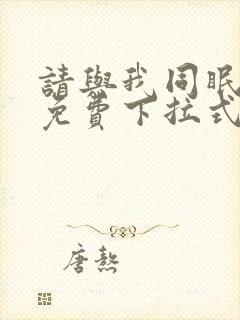 請與我同眠
免費下拉式
唐熬